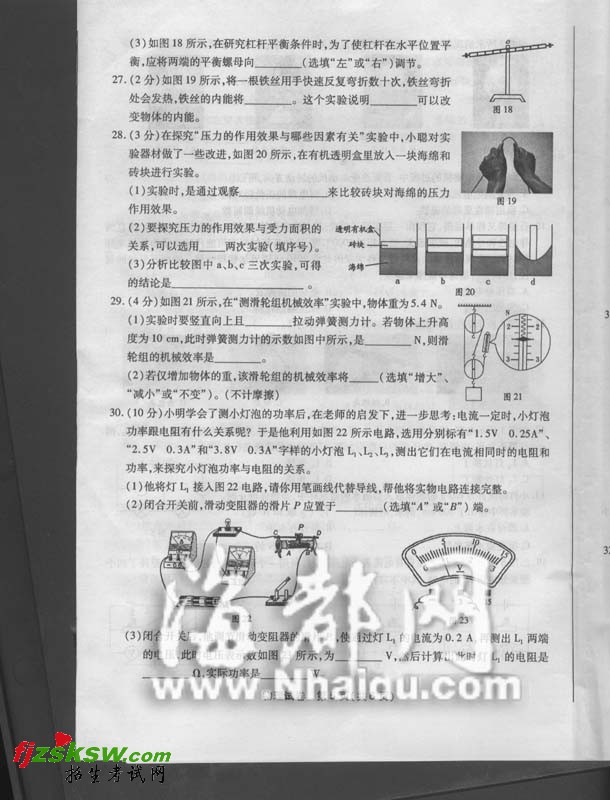 (3)如图18所示,在研究杠杆平衡条件时,为了使杠杆在水平位置平
衡,应将两端的平衡螺母向______(选填“左”或“右”)调节。
图18
27.(2分)如图19所示,将一根铁丝用手快速反复弯折数十次,铁丝弯折
处会发热,铁丝的内能将______。这个实验说明______可以改
变物体的内能。
28.(3分)在探究“压力的作用效果与哪些因素有关”实验中,小聪对实
验器材做了一些改进,如图20所示,在有机透明盒里放入一块海绵和
砖块进行实验。
图19
(1)实验时,是通过观察______来比较砖块对海绵的压力
作用效果。
(2)要探究压力的作用效果与受力面积的
关系,可以选用____两次实验(填序号)。
(3)分析比较图中a、b、c三次实验,可得
的结论是______。
透明有机盒
砖块
海绵
a b c d
图20
29.(4分)如图21所示,在“测滑轮组机械效率”实验中,物体重为5.4 N。
(1)实验时要竖直向上且______拉动弹簧测力计。若物体上升高
度为10 cm,此时弹簧测力计的示数如图中所示,是______N,则滑
轮组的机械效率是______。
(2)若仅增加物体的重,该滑轮组的机械效率将____(选填“增大”、
“减小”或“不变”)。(不计摩擦)
N
2 2
3 3
图21
30.(10分)小明学会了测小灯泡的功率后,在老师的启发下,进一步思考:电流一定时,小灯泡
功率跟电阻有什么关系呢?于是他利用如图22所示电路,选用分别标有“1.5V 0.25A”、
“2.5V 0.3A”和“3.8V 0.3A”字样的小灯泡L₁、L₂、L₃,测出它们在电流相同时的电阻和
功率,来探究小灯泡功率与电阻的关系。
(1)他将灯L₁接入图22电路,请你用笔画线代替导线,帮他将实物电路连接完整。
(2)闭合开关前,滑动变阻器的滑片P应置于______(选填“A”或“B”)端。
C P D
A B
0 5 10 15
V
图23
(3)闭合开关后,他调节滑动变阻器的滑片P,使通过灯L₁的电流为0.2 A,再测出L₁两端
的电压,此时电压表示数如图23所示,为______V,然后计算出此时灯L₁的电阻是
______Ω,实际功率是______
海都网
www.Nhaidu.com
fjzsksw.com
招生考试网